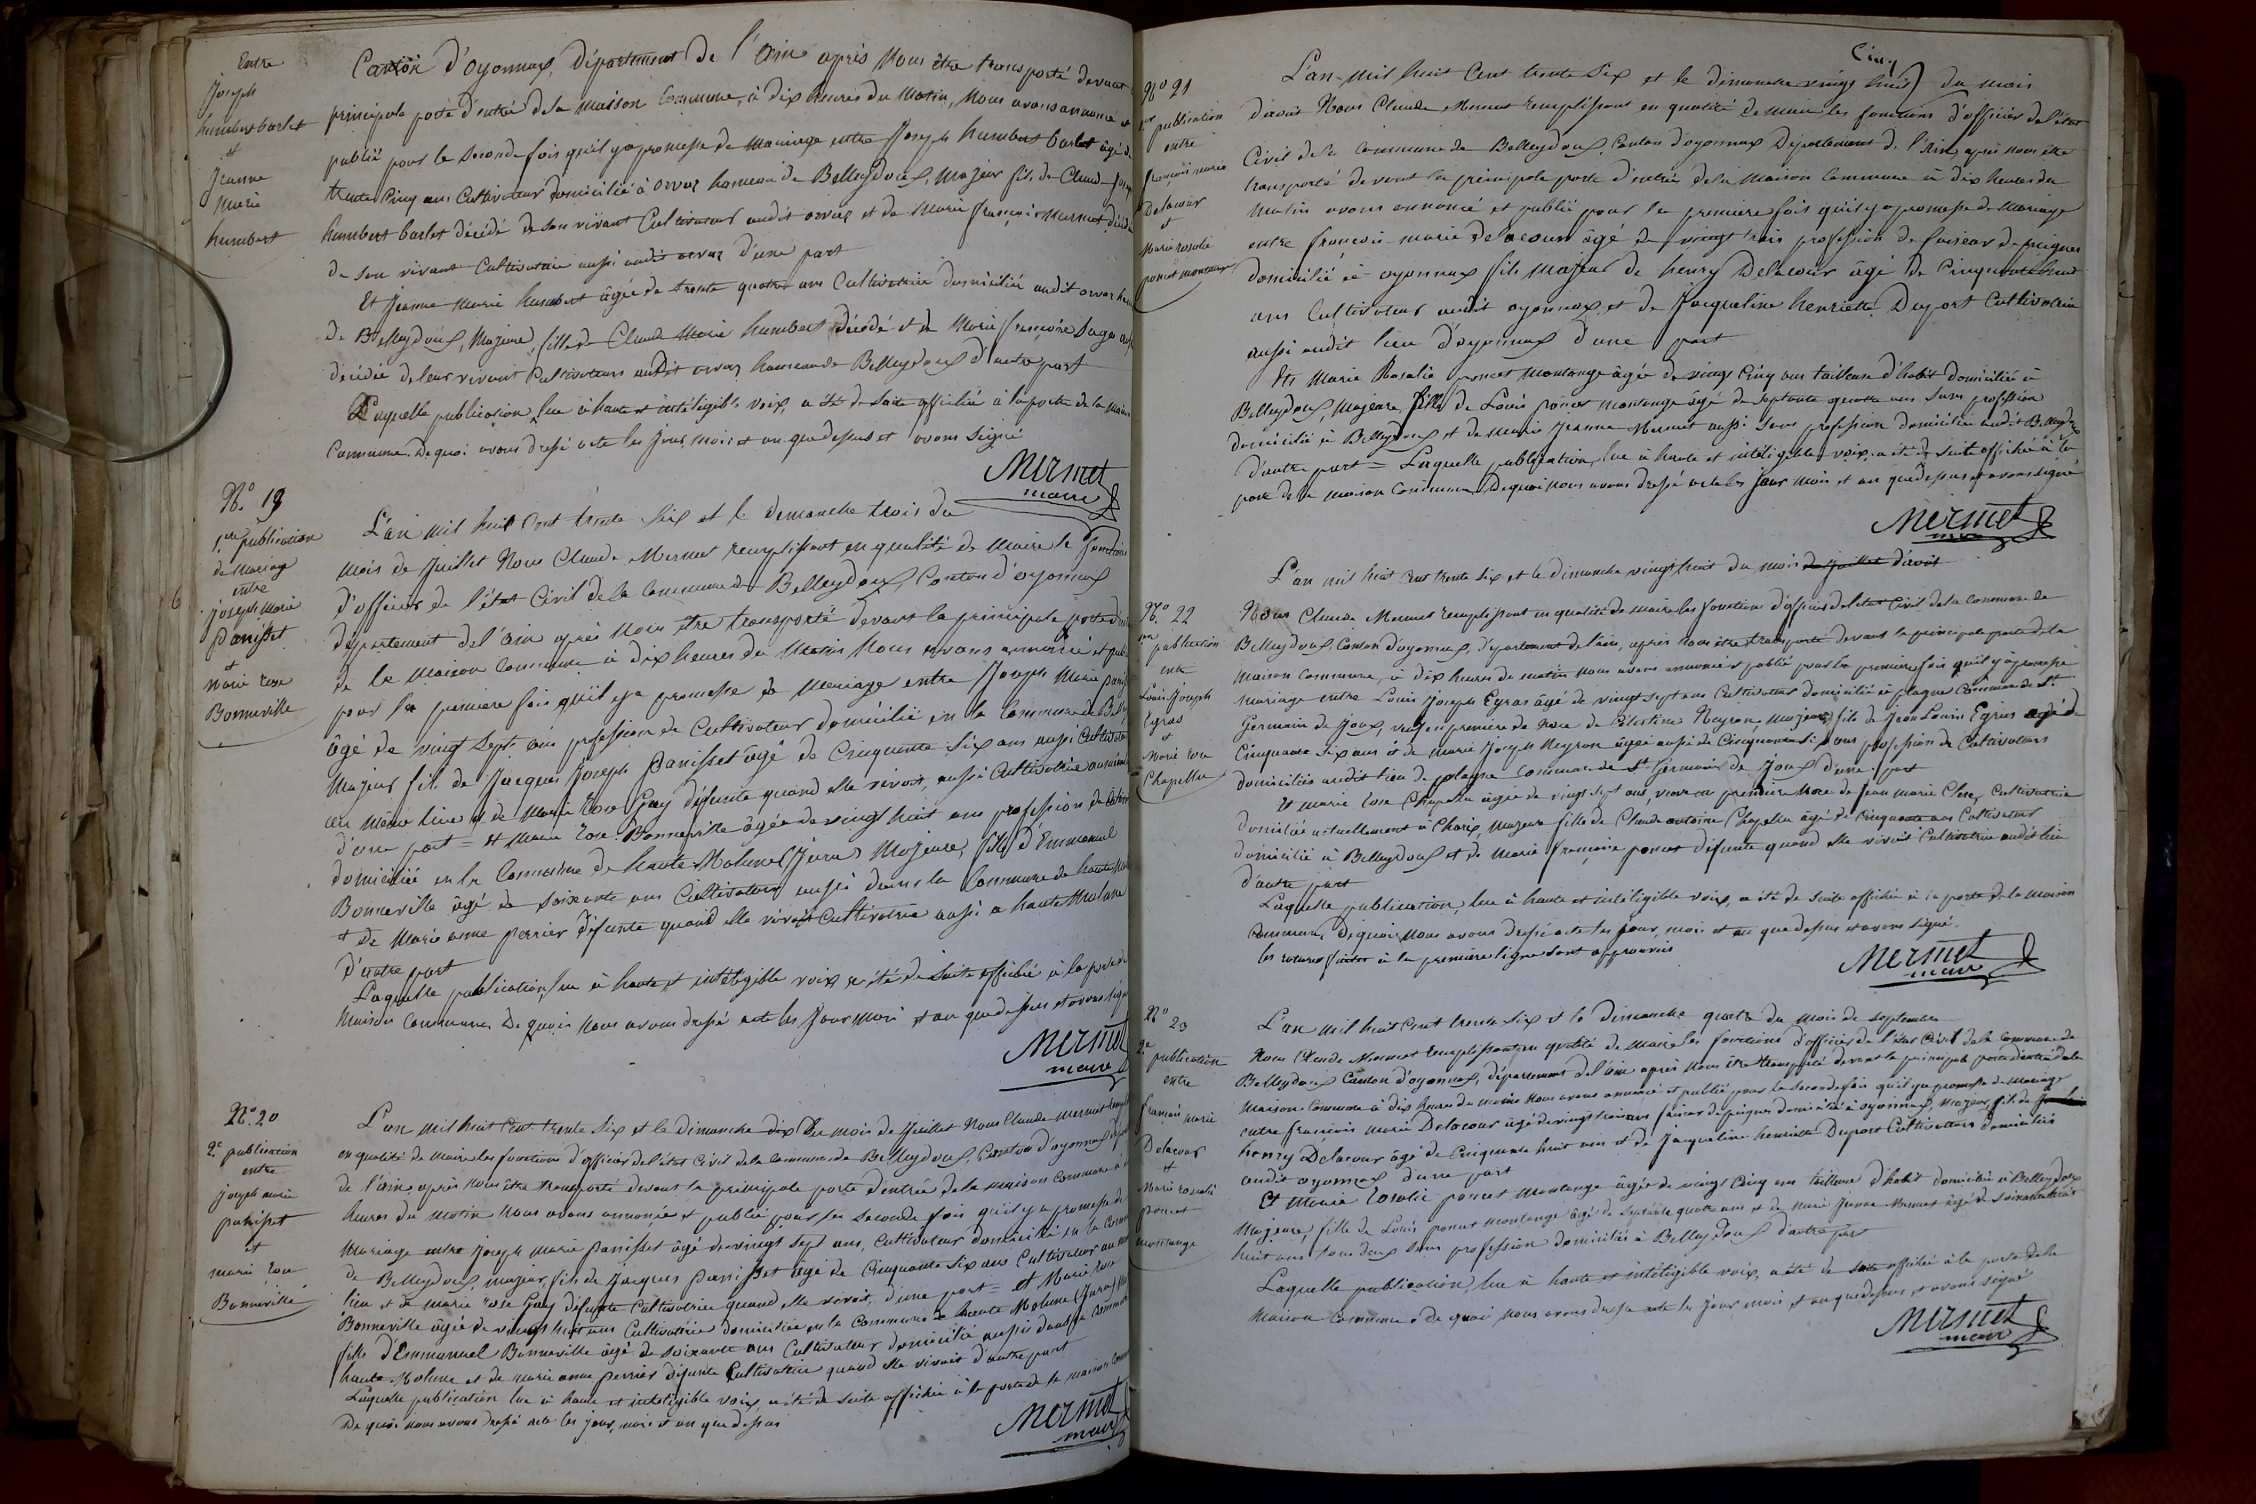 Entre
Joseph
humbert barlet
et
Jeanne
Marie
humbert
Canton d'oyonnax, département de l'ain après Nous être transporté devant
principale porte d'entrée de la Maison Commune, à dix heures du Matin, Nous avons annoncé et
publié pour la seconde fois qu'il y a promesse de Mariage entre Joseph humbert barlet âgé de
trente Cinq ans Cultivateur domicilié à orvaz hameau de Belleydoux, Majeur fils de Claude
humbert barlet décédé de son vivant Cultivateur audit orvaz et de Marie françoise Mermet
de son vivant Cultivatrice aussi audit orvaz d'une part
Et Jeanne Marie humbert âgée de trente quatre ans Cultivatrice domiciliée audit orvaz
de Belleydoux, Majeure, fille de Claude Marie humbert décédé et de Marie françoise
décédée de leur vivant Cultivateurs audit orvaz hameau de Belleydoux d'autre part
Laquelle publication, lue à haute et intéligible voix, a été de suite affichée à la porte de la Maison
Commune. De quoi avons dressé acte les Jour, mois et an que dessus et avons signé
Mermet
maire
N.° 19
1.ere publication
de Mariage
entre
joseph Marie
panisset
et
Marie rose
Bonneville
L'an mil huit Cent trente Six et le dimanche trois du
mois de Juillet Nous Claude Mermet remplissant en qualité de Maire le fonctions
d'officier de l'état Civil de la Commune de Belleydoux Canton d'oyonnax
département de l'ain après Nous être transporté devant la principale porte
de la Maison Commune à dix heures du Matin Nous avons annoncé et
pour la première fois qu'il y a promesse de Mariage entre Joseph Marie
âgé de vingt Sept ans profession de Cultivateur domicilié en la Commune de
Majeur fils de Jacques Joseph Panisset âgé de Cinquante Six ans aussi
au même lieu et de Marie Rose Gay défunte quand elle vivait, aussi Cultivatrice
d'une part = et Marie rose Bonneville âgée de vingt huit ans profession de
domiciliée en la Commune de haute Molune (Jura) Majeure, fille d'Emmanuel
Bonneville âgé de soixante ans Cultivateur aussi dans la Commune de haute
et de Marie anne perrier défunte quand elle vivait Cultivatrice aussi a haute Molune
d'autre part
Laquelle publication, lue à haute et intéligible voix a été de suite affichée à la porte de
Maison Commune, De quoi Nous avons dressé acte les Jour Mois et an que dessus et avons
Mermet
maire
N.° 20
2.e publication
entre
joseph marie
panisset
et
marie rose
Bonneville
L'an mil huit Cent trente Six et le dimanche dix du mois de Juillet Nous Claude Mermet
en qualité de Maire les fonctions d'officier de l'état Civil de la Commune de Belleydoux, Canton d'oyonnax
de l'ain, après Nous être transporté devant la principale porte d'entrée de la maison Commune à
heures du matin Nous avons annoncé et publié pour la seconde fois qu'il y a promesse de
Mariage entre joseph marie panisset âgé de vingt Sept ans, Cultivateur domicilié en la
de Belleydoux, majeur, fils de Jacques Panisset âgé de Cinquante Six ans Cultivateur
lieu et de Marie rose Gay défunte Cultivatrice quand elle vivait, d'une part = et Marie rose
Bonneville âgée de vingt huit ans Cultivatrice domiciliée en la Commune de haute Molune (Jura)
fille d'Emmanuel Bonneville âgé de soixante ans Cultivateur domicilié aussi dans la
haute Molune et de marie anne perrier défunte Cultivatrice quand elle vivait d'autre part
Laquelle publication lue à haute et intéligible voix, a été de suite affichée à la porte de la maison
De quoi nous avons dressé acte les jour, mois et an que dessus
Mermet
maire
Cinq
N.° 21
publication
entre
françois marie
Delacour
et
Marie rosalie
poncet montange
L'an mil huit Cent trente Six et le dimanche vingt huit du mois
d'aoùt Nous Claude Mermet remplissant en qualité de Maire les fonctions d'officier de l'état
Civil de la Commune de Belleydoux, Canton d'oyonnax Département de l'Ain, après nous être
transporté devant la principale porte d'entrée de la Maison Commune à dix heures du
Matin avons annoncé et publié pour la première fois qu'il y a promesse de Mariage
entre françois marie delacour âgé de vingt trois profession de faiseur de peignes
domicilié à oyonnax fils Majeur de henry Delacour âgé de Cinquante huit
ans Cultivateur audit oyonnax, et de Jacqueline henriette Duport Cultivatrice
aussi audit lieu d'oyonnax d'une part
Et Marie Rosalie poncet Montange âgée de vingt Cinq ans tailleuse d'habit domiciliée à
Belleydoux, Majeure, fille de Louis poncet montange âgé de septante quatre ans sans profession
domicilié à Belleydoux et de Marie Jeanne Mermet aussi sans profession domiciliée audit Belleydoux
d'autre part = Laquelle publication, lue à haute et intéligible voix, a été de suite affichée à la
porte de la maison Commune De quoi nous avons dressé acte les jour mois et an que dessus et avons signé
Mermet
maire
N.° 22
publication
entre
Louis Joseph
Egras
et
Marie rose
Chapellu
L'an mil huit Cent trente Six et le dimanche vingt huit du mois de juillet d'aoùt
Nous Claude Mermet remplissant en qualité de maire les fonctions d'officier de l'état Civil de la Commune de
Belleydoux, Canton d'oyonnax, département de l'ain, après nous être transporté devant la principale porte de la
maison Commune, à dix heures du matin nous avons annoncé et publié pour la première fois qu'il y a promesse
mariage entre Louis Joseph Egras âgé de vingt sept ans Cultivateur domicilié à plagne Commune de St
Germain de Joux, veuf en première de Noce de Célestine Neyron, majeur, fils de Jean Louis Egras agé de
Cinquante six ans et de marie Joseph Neyron âgée aussi de Cinquante Six ans profession de Cultivateurs
domiciliés audit lieu de plagne Commune de St Germain de Joux d'une part
Et marie rose Chapellu âgée de vingt sept ans, veuve en première Noce de Jean marie Clerc, Cultivatrice
domiciliée actuellement à Charix, majeure fille de Claude antoine Chapellu âgé de Cinquante ans Cultivateur
domicilié à Belleydoux et de Marie françoise poncet défunte quand elle vivait Cultivatrice audit lieu
d'autre part
Laquelle publication, lue à haute et intéligible voix, a été de suite affichée à la porte de la maison
Commune, De quoi Nous avons dressé acte les jour, mois et an que dessus et avons signé.
les ratures faites à la première ligne sont approuvés
Mermet
maire
N.° 23
2.e publication
entre
françois marie
Delacour
et
Marie rosalie
Poncet
montange
L'an mil huit Cent trente Six et le Dimanche quatre du mois de septembre
Nous Claude Mermet remplissant en qualité de Maire les fonctions d'officier de l'état Civil de la Commune de
Belleydoux Canton d'oyonnax, département de l'ain après Nous être transporté devant la principale porte d'entrée de la
Maison Commune à dix heures du matin Nous avons annoncé et publié pour la seconde fois qu'il y a promesse de Mariage
entre françois marie Delacour âgé de vingt trois ans faiseur de peignes domicilié à oyonnax, majeur, fils de
henry Delacour âgé de Cinquante huit ans et de Jacqueline henriette Duport Cultivateurs domiciliés
audit oyonnax d'une part
Et Marie rosalie poncet Montange âgée de vingt Cinq ans tailleuse d'habit domiciliée à Belleydoux
Majeure, fille de Louis poncet montange âgé de septante quatre ans et de Marie Jeanne Mermet âgée de soixante
huit ans tous deux sans profession domiciliés à Belleydoux d'autre part
Laquelle publication, lue à haute et intéligible voix, a été de suite affichée à la porte de la
Maison Commune de quoi nous avons dressé acte les jour mois et an que dessus et avons signé
Mermet
maire